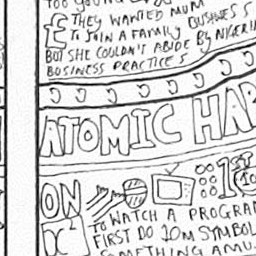 TOO YOUNG
£ THEY WANTED MUM
TO JOIN A FAMILY BUSINESS
BUT SHE COULDN'T ABIDE BY NIGERIAN
BUSINESS PRACTICES
ATOMIC HAR
ON 1ST 10
TO WATCH A PROGRAM
X² FIRST DO 10M SYMBOL
SOMETHING AMU